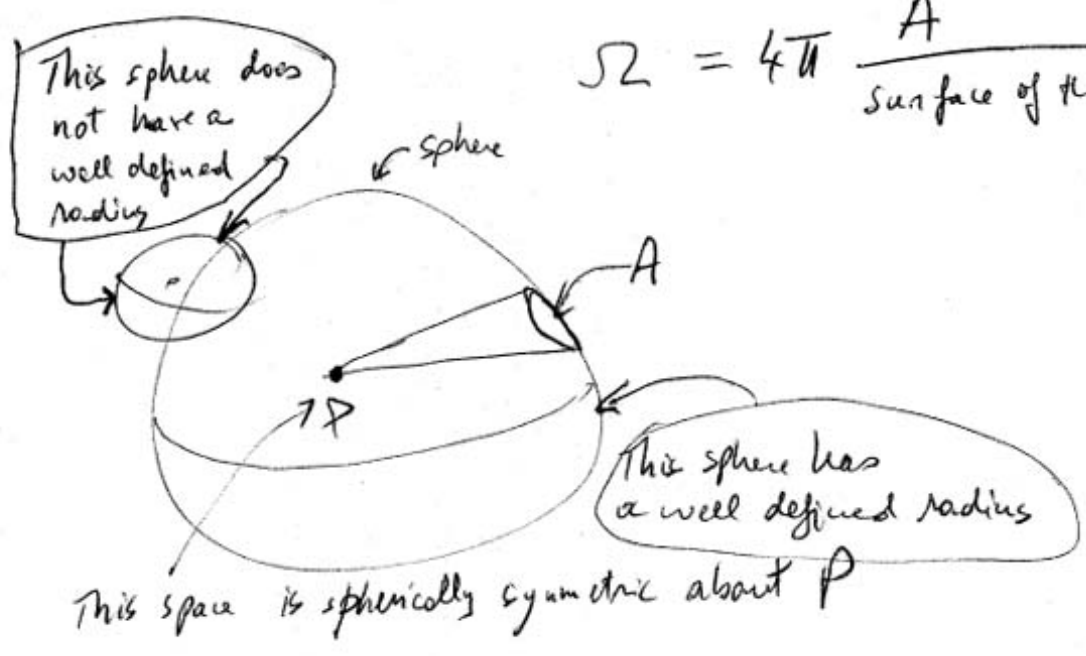 This sphere does
not have a
well defined
radius
Ω = 4π A
surface of th
sphere
A
P
This sphere has
a well defined radius
This space is spherically symmetric about P